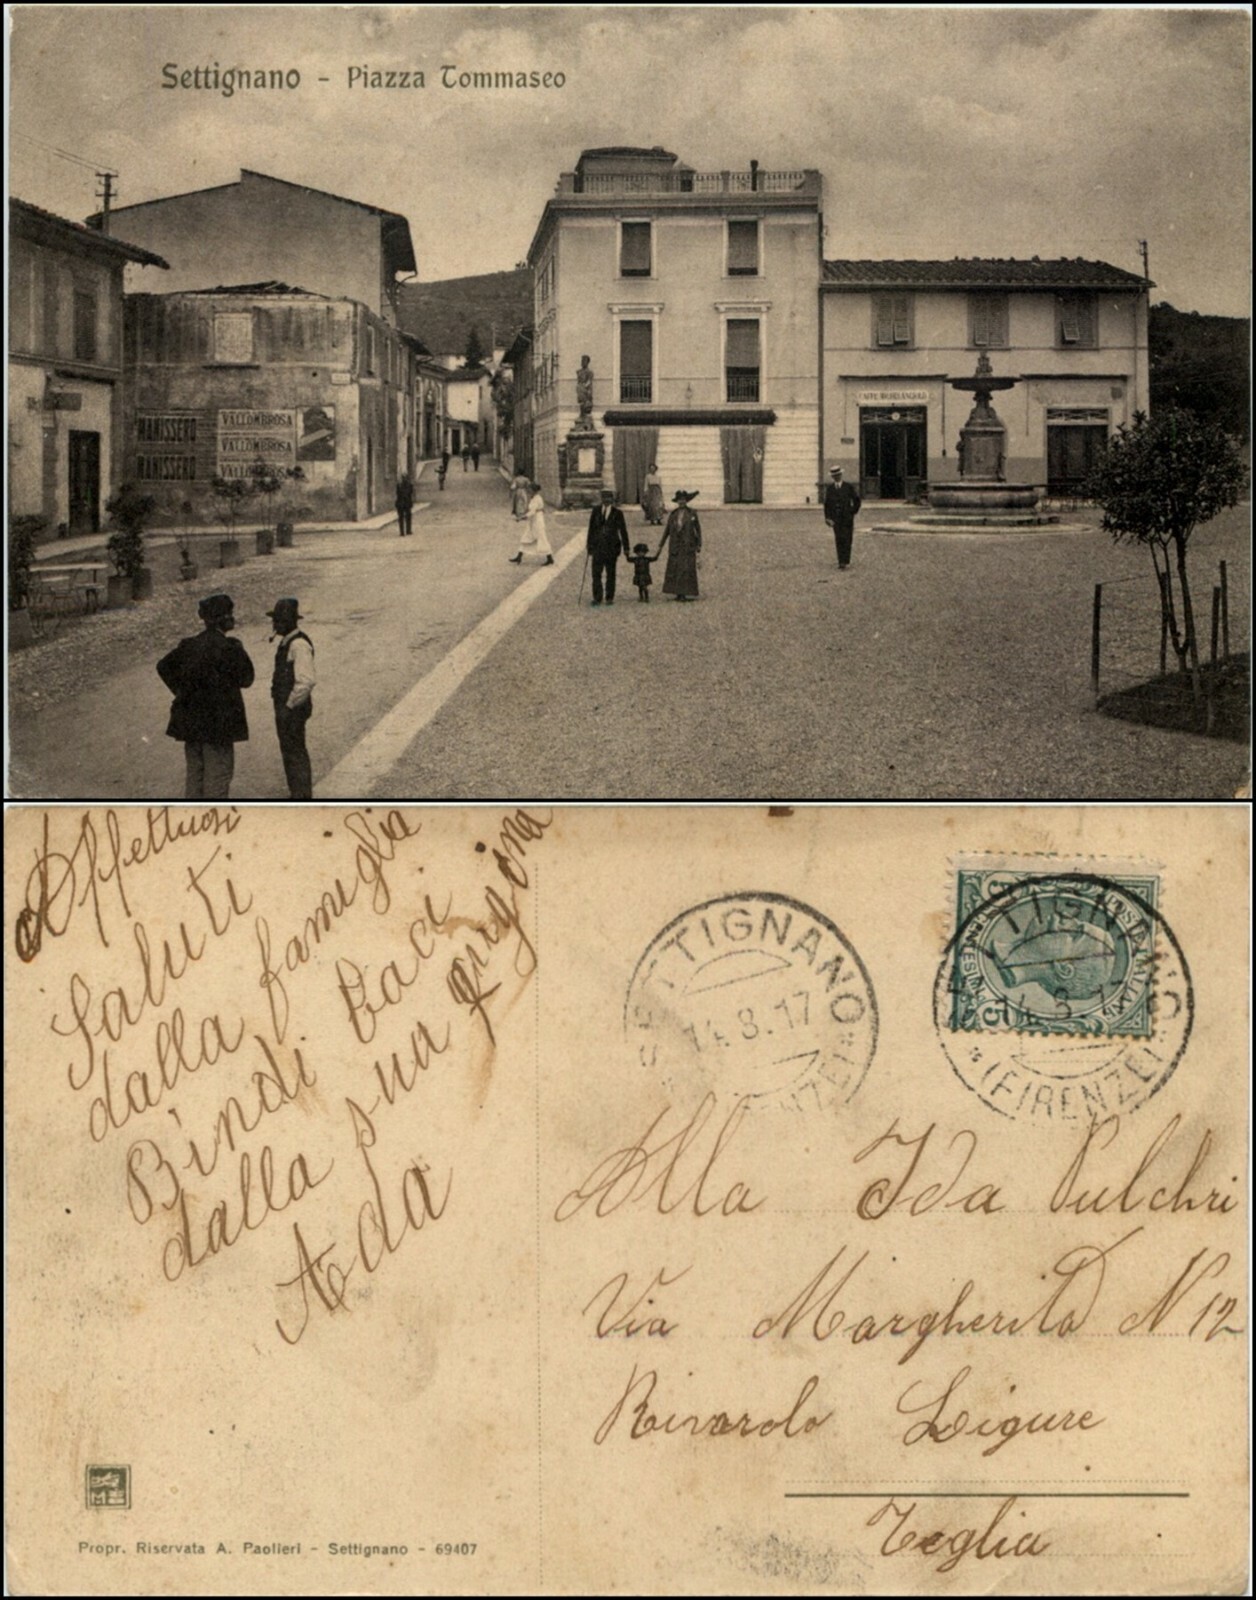 Settignano - Piazza Tommaseo
MANISSERO
MANISSERO
VALLOMBROSA
VALLOMBROSA
VALLOMBROSA
CAFFE MICHELANGELO
Affettuosi
Saluti
dalla famiglia
Bindi Baci
dalla sua
Ada
SETTIGNANO
14.8.17
(FIRENZE)
SETTIGNANO
14.8.17
(FIRENZE)
POSTE ITALIANE
5
5
Alla Ida Pulchri
Via Margherita N 12
Rivarolo Ligure
Teglia
Propr. Riservata A. Paolieri - Settignano - 69407